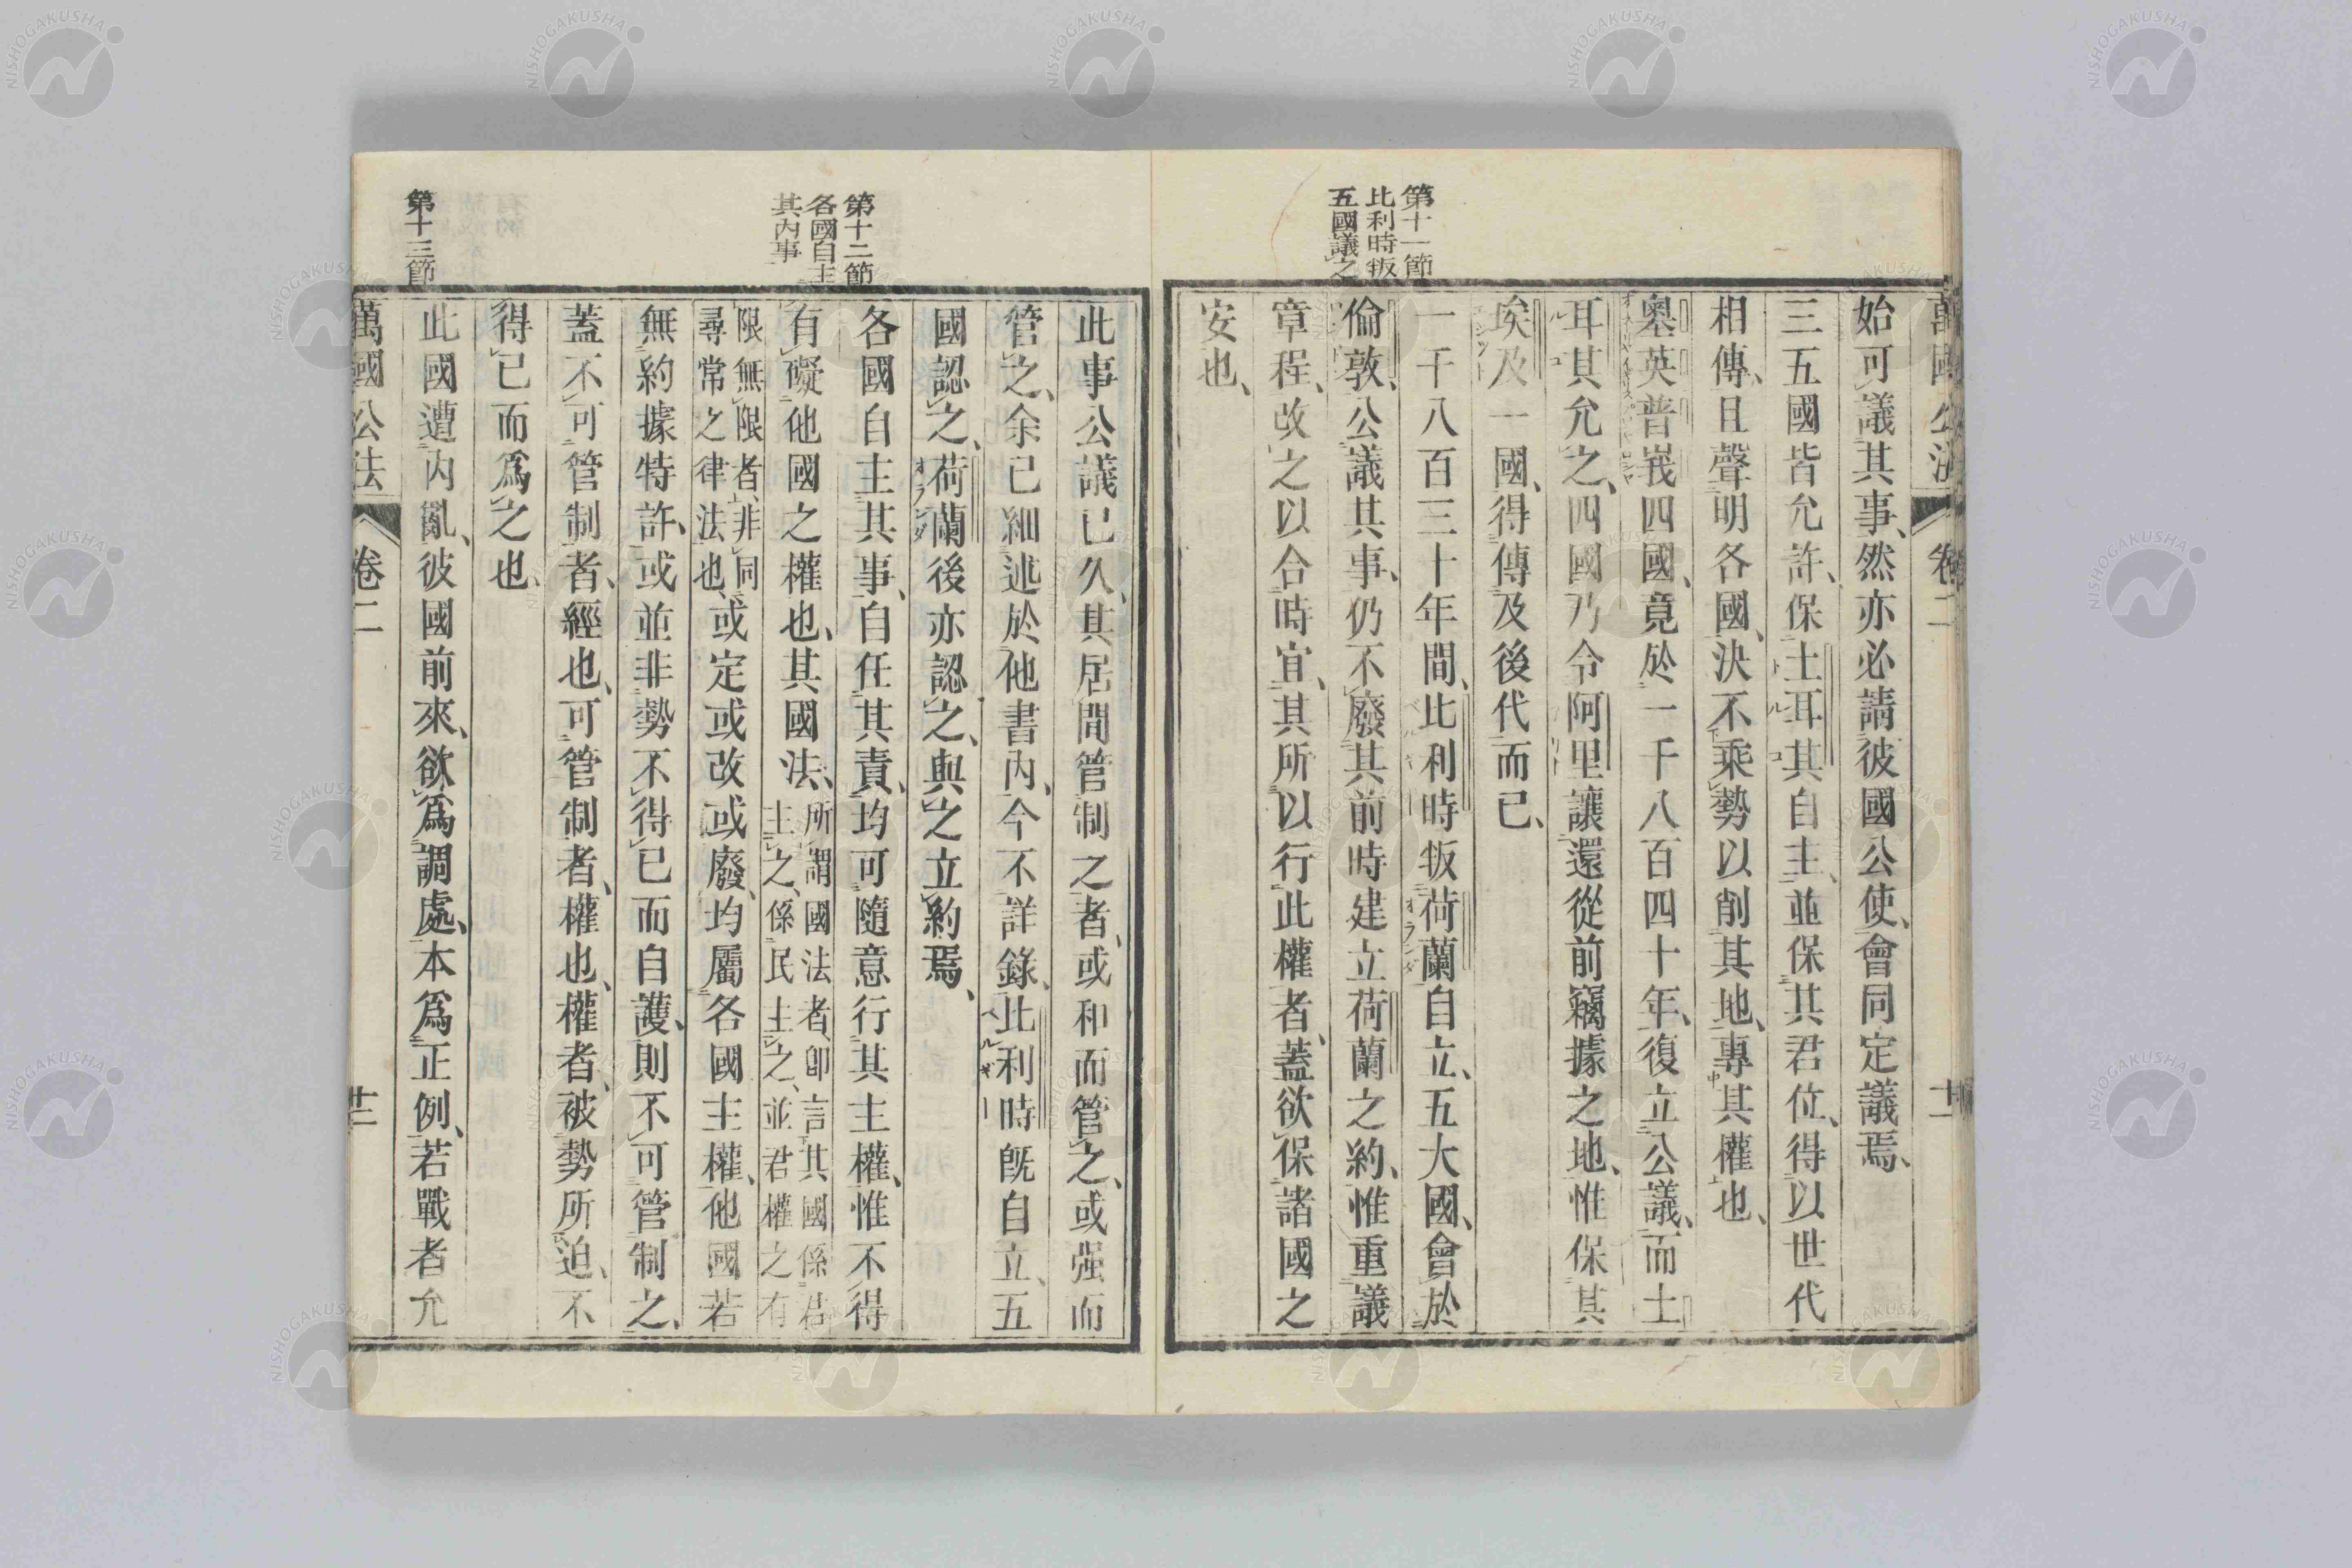 萬國公法 卷二 十二
始可議其事、然亦必請彼國公使、會同定議焉、
三五國皆允許、保土耳其自主、並保其君位、得以世代
相傳、且聲明各國、決不乘勢以削其地、專其權也、
奧英普峩四國、竟於一千八百四十年、復立公議、而土
耳其允之、四國乃令阿里讓還從前竊據之地、惟保其
埃及一國、得傳及後代而已、
第十一節
比利時叛
五國議之
一千八百三十年間、比利時叛荷蘭自立、五大國、會於
倫敦、公議其事、仍不廢其前時建立荷蘭之約、惟重議
章程、改之以合時宜、其所以行此權者、蓋欲保諸國之
安也、
此事公議已久、其居間管制之者、或和而管之、或强而
管之、余已細述於他書內、今不詳錄、比利時旣自立、五
國認之、荷蘭後亦認之、與之立約焉、
第十二節
各國自主
其內事
各國自主其事、自任其責、均可隨意行其主權、惟不得
有礙他國之權也、其國法、所謂國法者、卽言其國係君
主之、係民主之、並君權之有
限無限者、非同
尋常之律法也、或定或改或廢、均屬各國主權、他國若
無約據特許、或並非勢不得已而自護、則不可管制之、
蓋不可管制者、經也、可管制者、權也、權者、被勢所迫、不
得已而爲之也、
第十三節
此國遭內亂、彼國前來、欲爲調處、本爲正例、若戰者允
萬國公法 卷二 十二